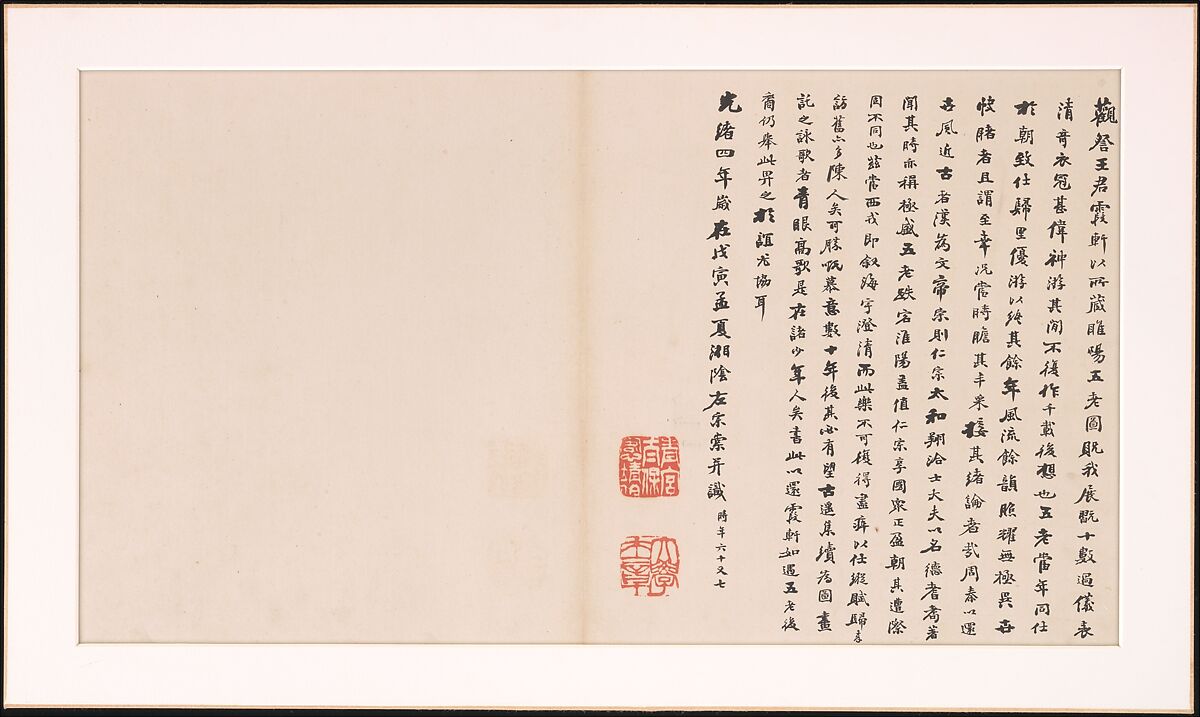 觀詧王君霞軒以所藏睢陽五老圖貺我展翫十數過儀表
清奇衣冠甚偉神游其間不復作千載後想也五老當年同仕
於朝致仕歸里優游以終其餘年風流餘韻照耀無極異世
快睹者且謂至幸況當時瞻其丰采接其緒論者哉周秦以還
世風近古者漢為文帝宋則仁宗太和翔洽士大夫以名德耆耇著
聞其時亦稱極盛五老跌宕淮陽蓋值仁宗享國眾正盈朝其遭際
固不同也茲當西戎即敘海宇澄清而此樂不可復得盡瘁以仕蹤賦歸來
訪舊亦多陳人矣可勝嘅慕意數十年後其必有望古遙集續為圖畫
託之詠歌者青眼高歌是在諸少年人矣書此以還霞軒如遇五老後
裔仍舉此畀之於誼尤協耳
光緒四年歲在戊寅孟夏湘陰左宗棠并識 時年六十又七
青宮太保恪靖侯
大學士章